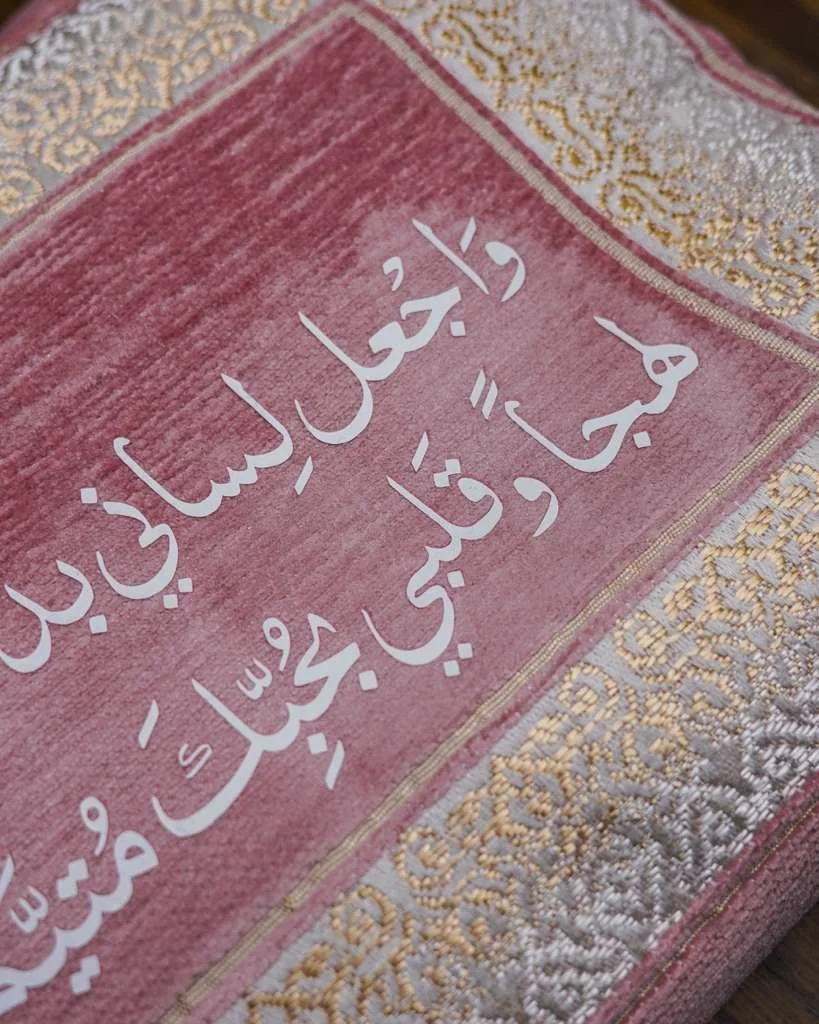 وَاجْعل لِساني
لهجاً وقَلبي
بحُبِّكَ